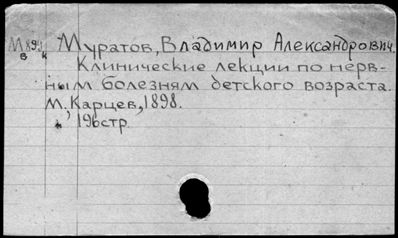 Муратов, Владимир Александрович.
Клинические лекции по нерв-
ным болезням детского возраста.
М., Карцев, 1898.
196стр.